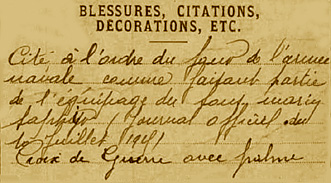 BLESSURES, CITATIONS,
DÉCORATIONS, ETC.
Cité à l'ordre du jour de l'armée
navale comme faisant partie
de l'équipage du sous marin
Journal officiel du
Juillet
Croix de Guerre avec palme